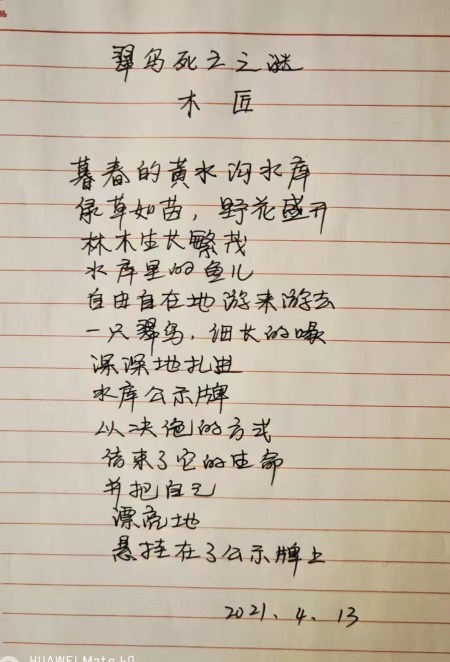 翠鸟死亡之谜
木匠
暮春的黄水沟水库
绿草如茵，野花盛开
林木生长繁茂
水库里的鱼儿
自由自在地游来游去
一只翠鸟，细长的喙
深深地扎进
水库公示牌
以决绝的方式
结束了它的生命
并把自己
漂亮地
悬挂在了公示牌上
2021.4.13
HUAWEI Mate 40